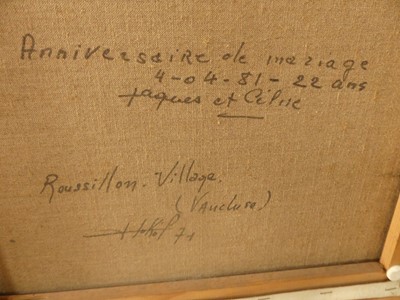 Anniversaire de mariage
4-04-81-22 ans
Jaques et
Roussillon. Village.
(Vaucluse)
71